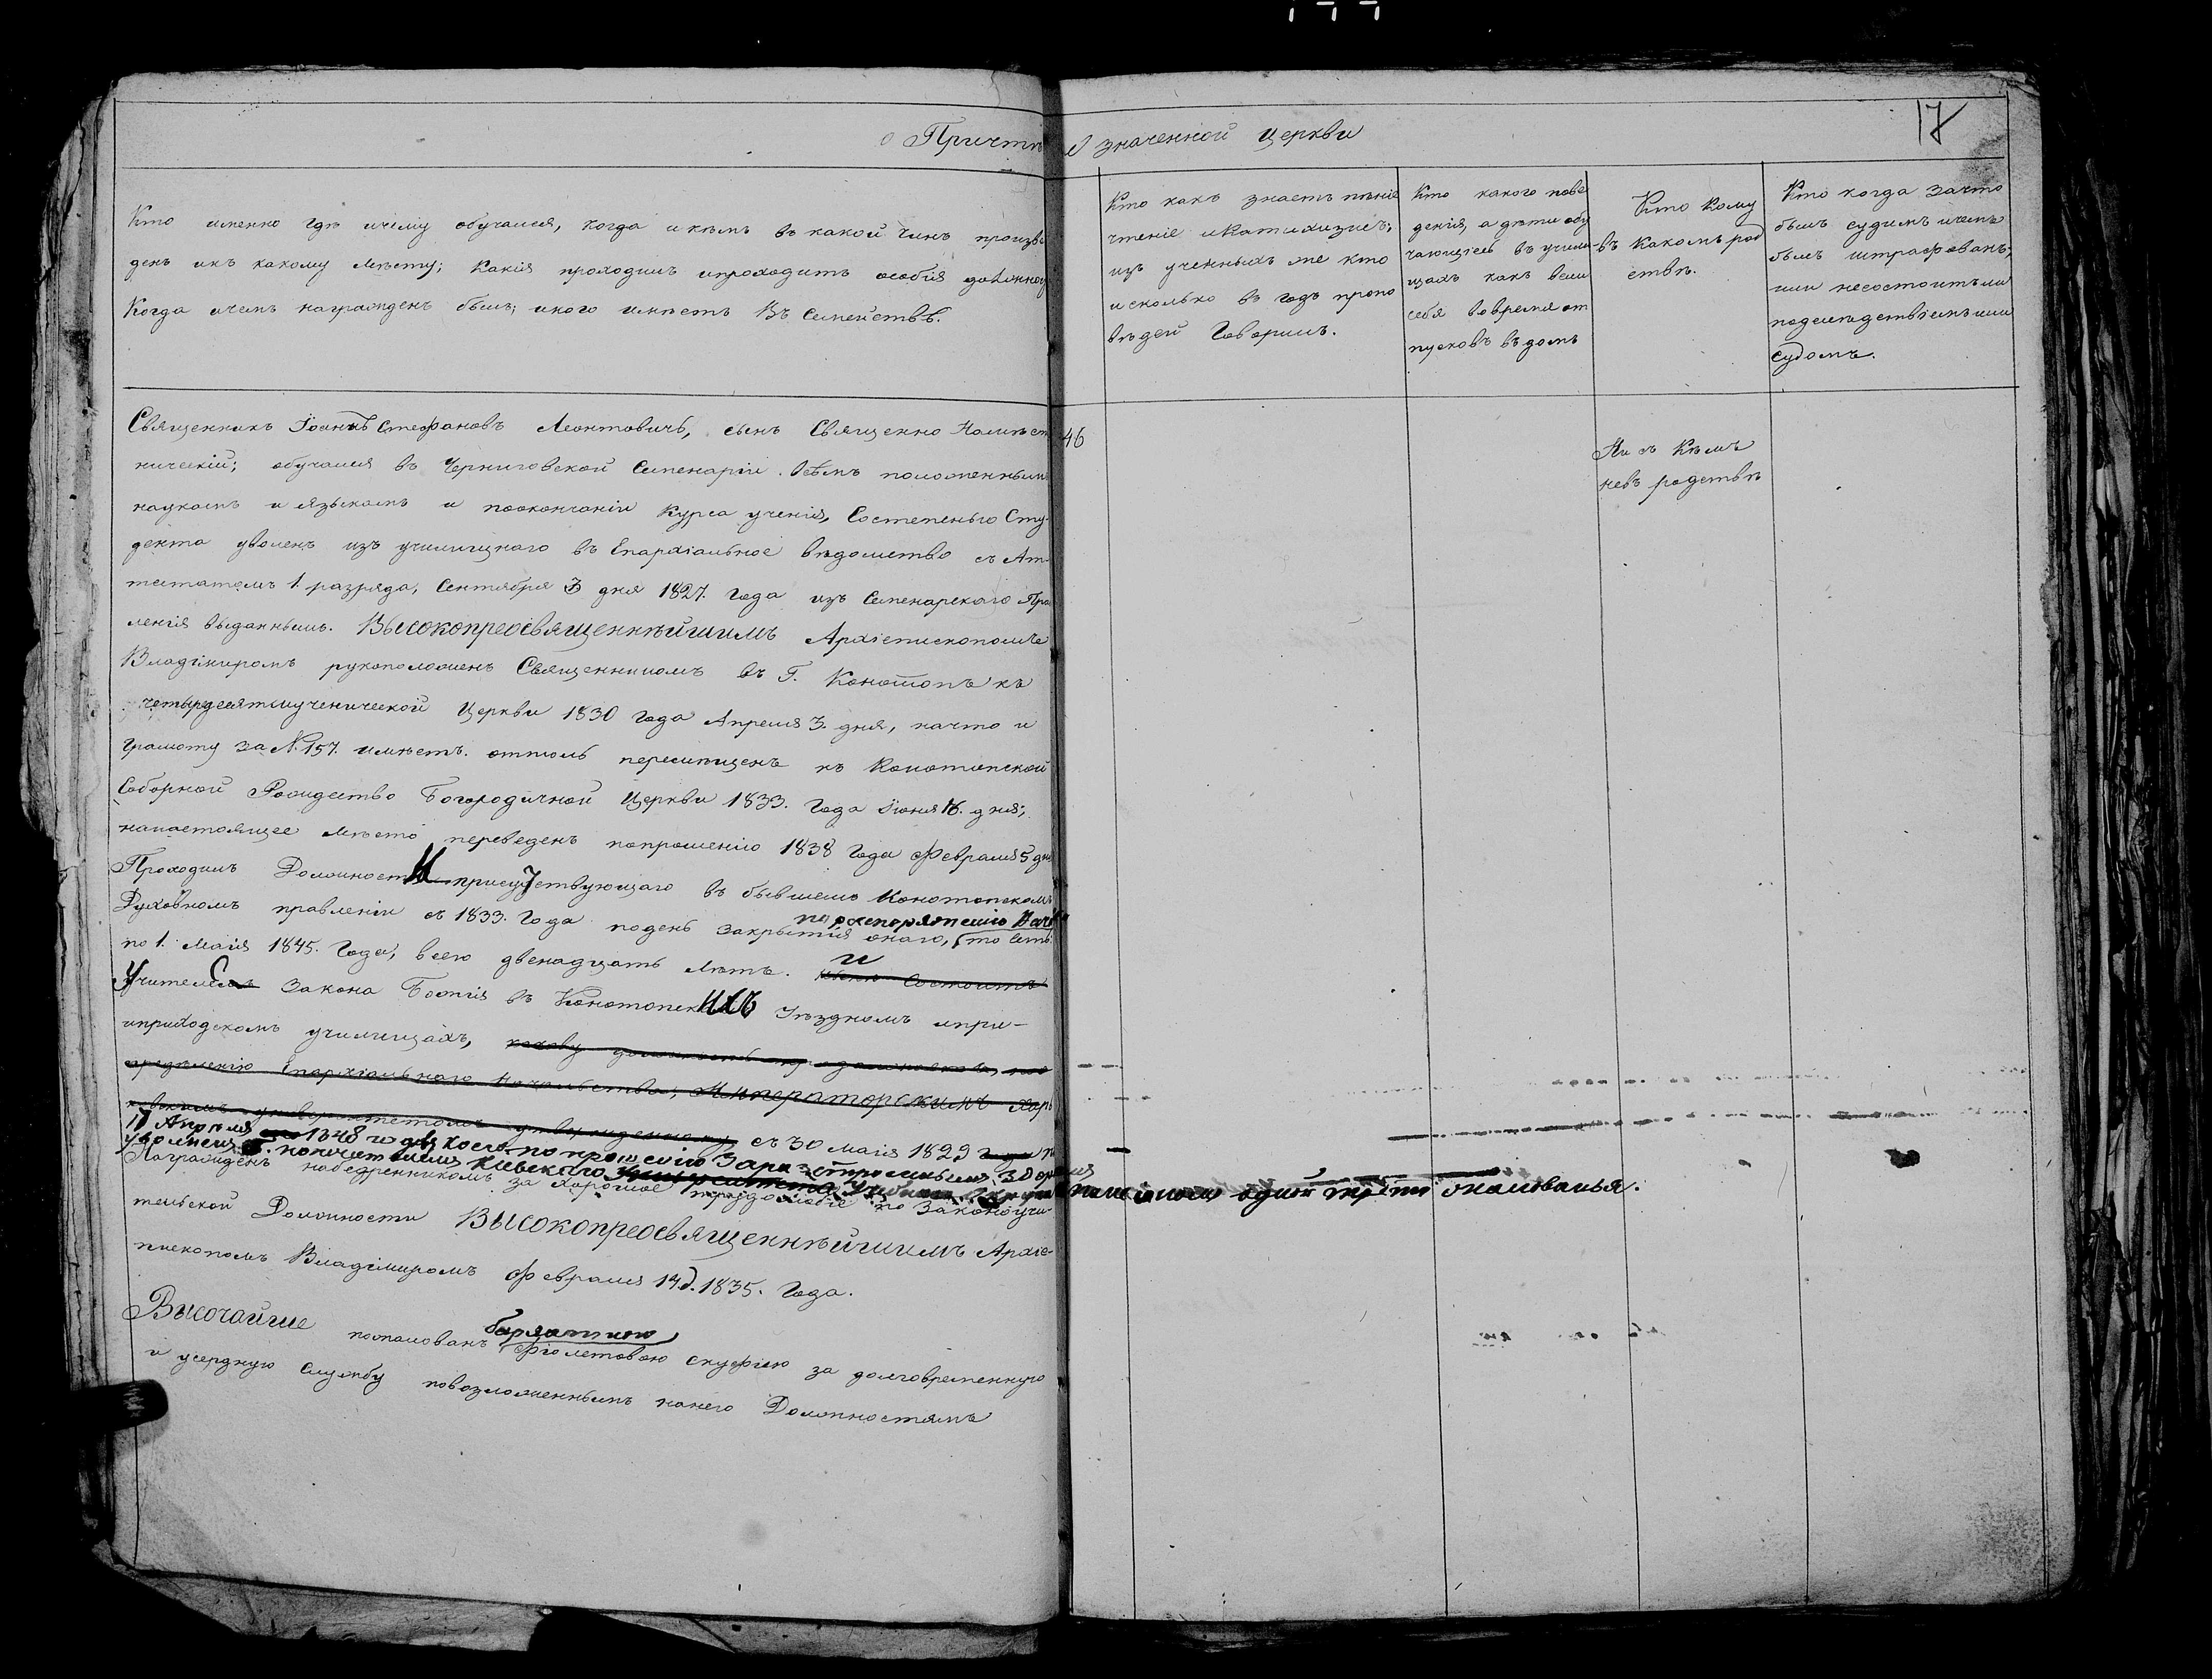 о Причтѣ означенной церкви
17
Кто именно гдѣ ичему обучался, когда икѣмъ въ какой чинъ произве
денъ икъ какому мѣсту; какія проходилъ ипроходитъ особія должнос
Когда ичемъ награжденъ былъ; икого имѣетъ Въ Семействѣ.
Кто какъ знаетъ пѣніе
чтеніе иКатихизисъ;
изъ ученыхъ же кто
исколько въ годъ пропо
вѣдей Говорилъ.
Кто какого пове
денія, а дѣти обу
чающіесь въ учили
щахъ какъ вели
себя вовремя от
пусковъ въ домъ
Кто кому
въ какомъ род
ствѣ.
Кто когда зачто
былъ судимъ ичемъ
былъ штрафованъ;
или несостоитъли
подслѣдствіемъ или
судомъ.
Священникъ Іоаннъ Стефановъ Леонтовичъ, сынъ Священно Намѣст
ническій; обучался въ Черниговской Семенаріи. Всѣмъ положеннымъ
наукамъ и языкамъ и поокончаніи Курса ученія, Состепенью Сту-
дента уволенъ изъ училищнаго въ Епархіальное вѣдомство съ Ат-
тестатомъ 1. разряда, Сентября 3 дня 1827. Года изъ Семенарскаго Прав
ленія выданнымъ. Высокопреосвященнѣйшимъ Архіепископомъ
Владиміромъ рукоположенъ Священникомъ въ Г. Конотопъ къ
четыредесятмученической Церкви 1830 Года Апреля 3. дня, начто и
грамоту за №157. имѣетъ. оттоль перемѣщенъ къ Конотопской
Соборной Рождество Богородичной Церкви 1833. Года Іюня 16. дня;
нанастоящее мѣсто переведенъ попрошенію 1838 Года Февраля 5 дня
Проходилъ Должность присутствующаго въ бывшемъ Конотопскомъ
Духовномъ правленіи съ 1833. Года подень закрытія онаго, то есть
по распоряженію Нач
по 1. Маія 1845. Года, всего двенадцать лѣтъ. и
Учителя Закона Божія въ Конотопскихъ Уѣздномъ ипри-
иприходскомъ училищахъ,
опредѣленію Епархіальнаго Начальства, Императорскимъ Харь
ковскимъ университетомъ съ 30 Маія 1829
17 Апрѣля 1848 года коего по прошенію
уволенъ попечителемъ Кіевскаго пансіономъ одной трети окалованья.
Награжденъ набедренникомъ за хорошое прохожденіе по Законоучи-
тельской Должности Высокопреосвященнѣйшимъ Архіе-
пископомъ Владиміромъ Февраля 14 д. 1835. Года.
Высочайше пожалованъ бархатною фіолетовою скуфіею за долговременную
и усердную Службу повозложеннымъ нанего Должностямъ
46
Ни съ Кѣмъ
невъ родствѣ